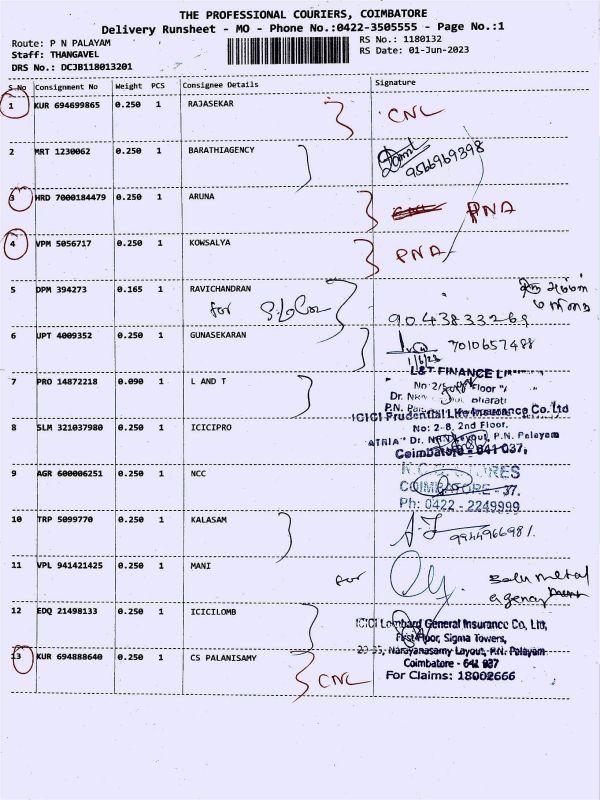 THE PROFESSIONAL COURIERS, COIMBATORE
Delivery Runsheet - MO - Phone No.:0422-3505555 - Page No.:1
Route: P N PALAYAM RS No.: 1180132
Staff: THANGAVEL RS Date: 01-Jun-2023
DRS No.: DCJB118013201
S.No Consignment No Weight PCS Consignee Details Signature
1 KUR 694699865 0.250 1 RAJASEKAR CNL
2 MRT 1230062 0.250 1 BARATHIAGENCY
9566969398
3 HRD 7000184479 0.250 1 ARUNA PNA
4 VPM 5056717 0.250 1 KOWSALYA PNA
5 DPM 394273 0.165 1 RAVICHANDRAN
for 9043833269
6 UPT 4009352 0.250 1 GUNASEKARAN 7010657488
1/6/23
7 PRO 14872218 0.090 1 L AND T
L&T FINANCE
No:2/5 Floor
Dr. bharati
P.N.
8 SLM 321037980 0.250 1 ICICIPRO
ICICI Prudential Life Insurance Co. Ltd
No: 2-8, 2nd Floor.
ATRIA" Dr. Layout, P.N. Palayam
Coimbatore - 641 037,
9 AGR 600006251 0.250 1 NCC
COIMBATORE - 37.
Ph: 0422 - 2249999
10 TRP 5099770 0.250 1 KALASAM
9944966981
11 VPL 941421425 0.250 1 MANI for
metal
agency
12 EDQ 21498133 0.250 1 ICICILOMB
ICICI Lombard General Insurance Co, Ltd,
First Floor, Sigma Towers,
Narayanasamy Layout, P.N. Palayam
Coimbatore - 641 037
For Claims: 18002666
13 KUR 694888640 0.250 1 CS PALANISAMY CNL